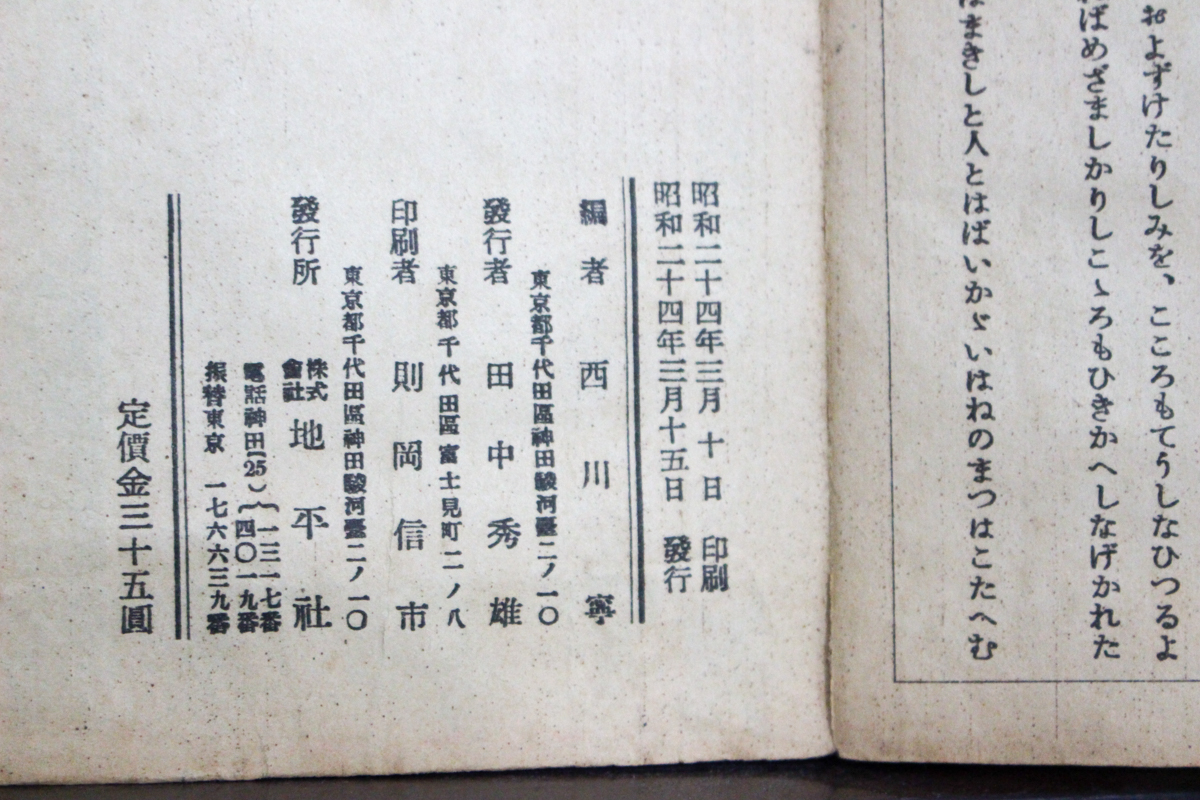 およずけたりしみを、こころもてうしなひつるよ
ばめざましかりしこゝろもひきかへしなげかれた
まきしと人とはばいかゞいはねのまつはこたへむ
昭和二十四年三月十日 印刷
昭和二十四年三月十五日 發行
編者 西川寧
東京都千代田區神田駿河臺二ノ一〇
發行者 田中秀雄
東京都千代田區富士見町二ノ八
印刷者 則岡信市
東京都千代田區神田駿河臺二ノ一〇
發行所 株式會社 地平社
電話神田(25){一三一七番
四〇一九番
振替東京 一七六六三九番
定價金三十五圓